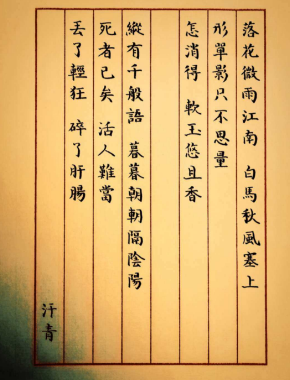 落花微雨江南 白馬秋風塞上
形單影只不思量
怎消得 軟玉悠且香
縱有千般語 暮暮朝朝隔陰陽
死者已矣 活人難當
丟了輕狂 碎了肝腸
汗青